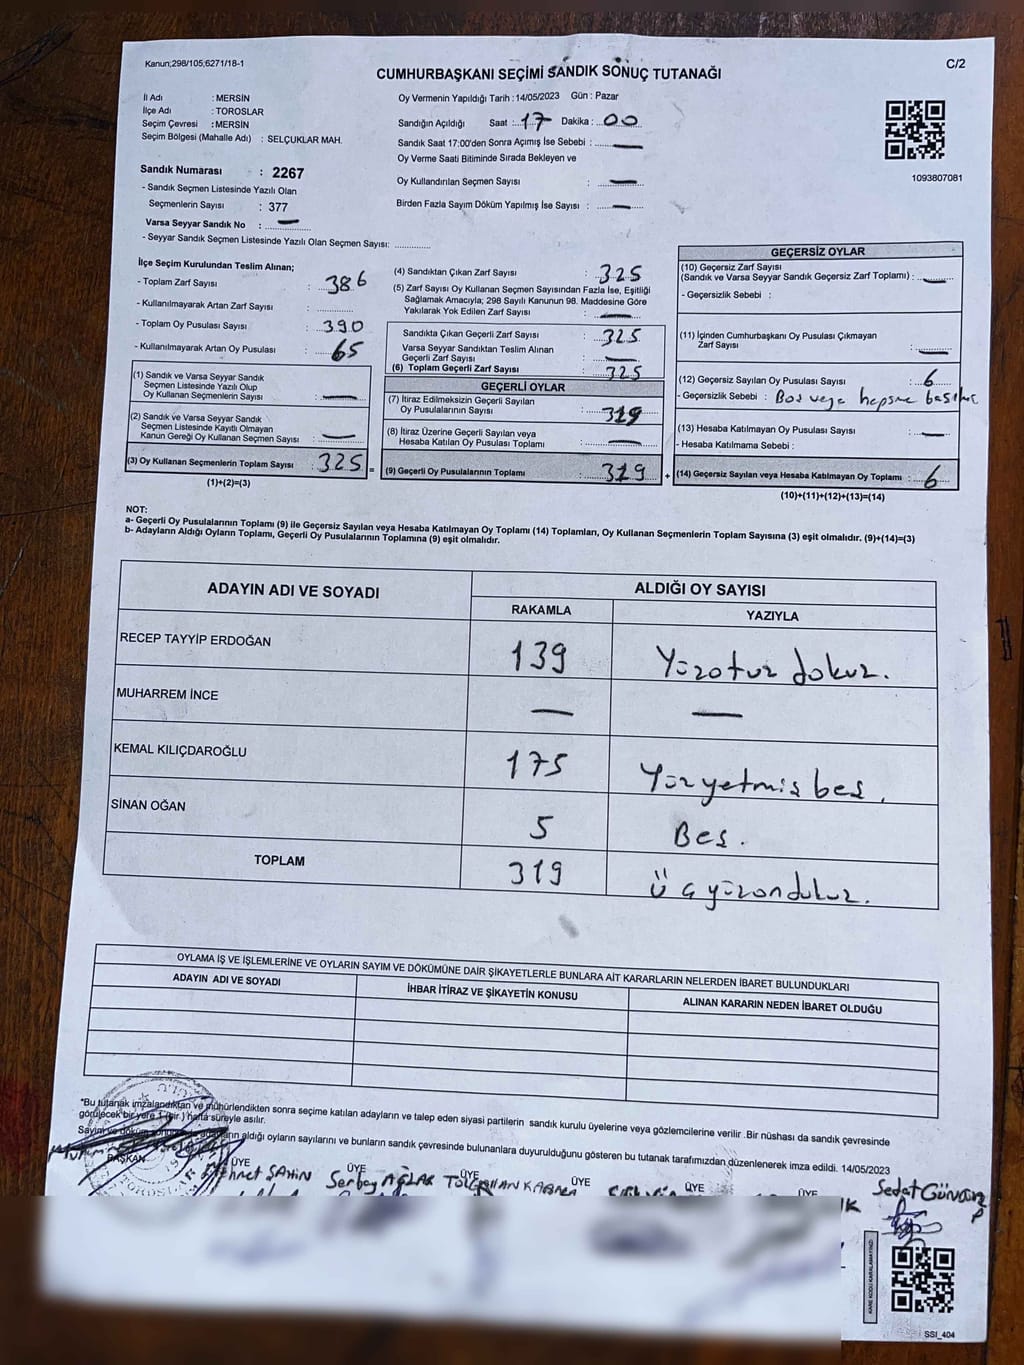 Kanun;298/105;6271/18-1
C/2
CUMHURBAŞKANI SEÇİMİ SANDIK SONUÇ TUTANAĞI
İl Adı : MERSİN
İlçe Adı : TOROSLAR
Seçim Çevresi : MERSİN
Seçim Bölgesi (Mahalle Adı) : SELÇUKLAR MAH.
Sandık Numarası : 2267
- Sandık Seçmen Listesinde Yazılı Olan
Seçmenlerin Sayısı : 377
Varsa Seyyar Sandık No : —
- Seyyar Sandık Seçmen Listesinde Yazılı Olan Seçmen Sayısı:
Oy Vermenin Yapıldığı Tarih : 14/05/2023 Gün : Pazar
Sandığın Açıldığı Saat : 17 Dakika : 00
Sandık Saat 17:00'den Sonra Açımış İse Sebebi : —
Oy Verme Saati Bitiminde Sırada Bekleyen ve
Oy Kullandırılan Seçmen Sayısı : —
Birden Fazla Sayım Döküm Yapılmış İse Sayısı : —
1093807081
İlçe Seçim Kurulundan Teslim Alınan;
- Toplam Zarf Sayısı : 386
- Kullanılmayarak Artan Zarf Sayısı :
- Toplam Oy Pusulası Sayısı : 390
- Kullanılmayarak Artan Oy Pusulası : 65
(1) Sandık ve Varsa Seyyar Sandık
Seçmen Listesinde Yazılı Olup
Oy Kullanan Seçmenlerin Sayısı : —
(2) Sandık ve Varsa Seyyar Sandık
Seçmen Listesinde Kayıtlı Olmayan
Kanun Gereği Oy Kullanan Seçmen Sayısı : —
(3) Oy Kullanan Seçmenlerin Toplam Sayısı : 325 =
(1)+(2)=(3)
(4) Sandıktan Çıkan Zarf Sayısı : 325
(5) Zarf Sayısı Oy Kullanan Seçmen Sayısından Fazla İse, Eşitliği
Sağlamak Amacıyla; 298 Sayılı Kanunun 98. Maddesine Göre
Yakılarak Yok Edilen Zarf Sayısı : —
Sandıkta Çıkan Geçerli Zarf Sayısı : 325
Varsa Seyyar Sandıktan Teslim Alınan
Geçerli Zarf Sayısı : —
(6) Toplam Geçerli Zarf Sayısı : 325
GEÇERLİ OYLAR
(7) İtiraz Edilmeksizin Geçerli Sayılan
Oy Pusulalarının Sayısı : 319
(8) İtiraz Üzerine Geçerli Sayılan veya
Hesaba Katılan Oy Pusulası Toplamı : —
(9) Geçerli Oy Pusulalarının Toplamı : 319 +
GEÇERSİZ OYLAR
(10) Geçersiz Zarf Sayısı
(Sandık ve Varsa Seyyar Sandık Geçersiz Zarf Toplamı) : —
- Geçersizlik Sebebi :
(11) İçinden Cumhurbaşkanı Oy Pusulası Çıkmayan
Zarf Sayısı : —
(12) Geçersiz Sayılan Oy Pusulası Sayısı : 6
- Geçersizlik Sebebi : Bos veya hepsine
(13) Hesaba Katılmayan Oy Pusulası Sayısı : —
- Hesaba Katılmama Sebebi :
(14) Geçersiz Sayılan veya Hesaba Katılmayan Oy Toplamı : 6
(10)+(11)+(12)+(13)=(14)
NOT:
a- Geçerli Oy Pusulalarının Toplamı (9) ile Geçersiz Sayılan veya Hesaba Katılmayan Oy Toplamı (14) Toplamları, Oy Kullanan Seçmenlerin Toplam Sayısına (3) eşit olmalıdır. (9)+(14)=(3)
b- Adayların Aldığı Oyların Toplamı, Geçerli Oy Pusulalarının Toplamına (9) eşit olmalıdır.
ADAYIN ADI VE SOYADI ALDIĞI OY SAYISI
RAKAMLA YAZIYLA
RECEP TAYYİP ERDOĞAN 139 Yüzotuz dokuz.
MUHARREM İNCE — —
KEMAL KILIÇDAROĞLU 175 Yüzyetmis bes.
SİNAN OĞAN 5 Bes.
TOPLAM 319 Üçyüzondokuz.
OYLAMA İŞ VE İŞLEMLERİNE VE OYLARIN SAYIM VE DÖKÜMÜNE DAİR ŞİKAYETLERLE BUNLARA AİT KARARLARIN NELERDEN İBARET BULUNDUKLARI
ADAYIN ADI VE SOYADI İHBAR İTİRAZ VE ŞİKAYETİN KONUSU ALINAN KARARIN NEDEN İBARET OLDUĞU
"Bu tutanak imzalandıktan ve mühürlendikten sonra seçime katılan adayların ve talep eden siyasi partilerin sandık kurulu üyelerine veya gözlemcilerine verilir .Bir nüshası da sandık çevresinde
görülecek bir yere 1 (bir ) hafta süreyle asılır.
Sayım ve döküm aldığı oyların sayılarını ve bunların sandık çevresinde bulunanlara duyurulduğunu gösteren bu tutanak tarafımızdan düzenlenerek imza edildi. 14/05/2023
BAŞKAN ÜYE ÜYE ÜYE ÜYE ÜYE ÜYE
ŞAHİN Serbay AĞLAR Sedat
TOROSLAR
KARE KODU KARALAMAYINIZ!
SSI_404